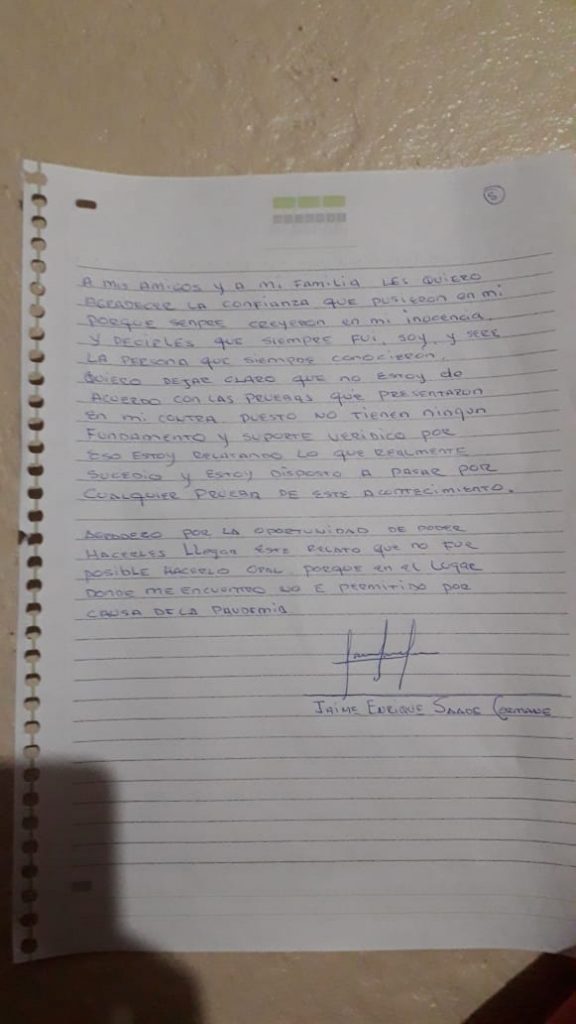 5
A MIS AMIGOS Y A MI FAMILIA LES QUIERO
AGRADECER LA CONFIANZA QUE PUSIERON EN MI
PORQUE SENPRE CREYERON EN MI INOCENCIA,
Y DECIRLES QUE SIEMPRE FUI, SOY, Y SERE
LA PERSONA QUE SIEMPRE CONOCIERON,
QUIERO DEJAR CLARO QUE NO ESTOY DE
ACUERDO CON LAS PRUEBAS QUE PRESENTARON
EN MI CONTRA PUESTO NO TIENEN NINGUN
FUNDAMENTO Y SUPORTE VERIDICO POR
ESO ESTOY RELATANDO LO QUE REALMENTE
SUCEDIO Y ESTOY DISPOSTO A PASAR POR
CUALQUIER PRUEBA DE ESTE ACONTECIMIENTO.
POR LA OPORTUNIDAD DE PODER
HACERLES LLEGAR ESTE RELATO QUE NO FUE
POSIBLE HACERLO ORAL PORQUE EN EL LUGAR
DONDE ME ENCUENTRO NO E PERMITIDO POR
CAUSA DE LA PANDEMIA
JAIME ENRIQUE SAADE CORMANE